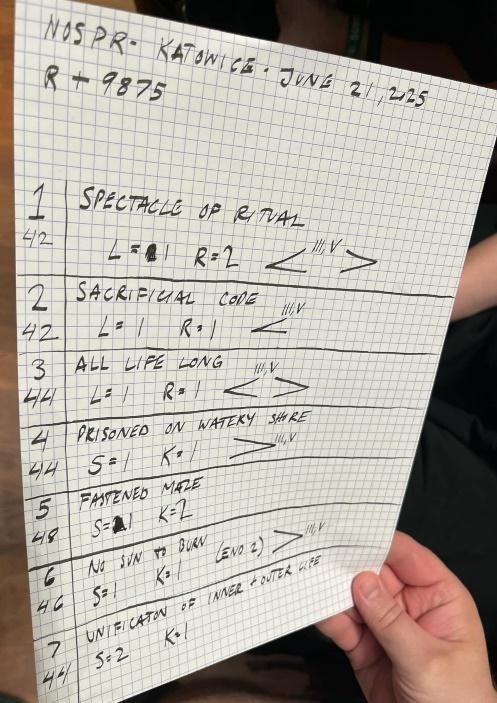 NOSPR - KATOWICE · JUNE 21, 2025
R + 9875
1 SPECTACLE OF RITUAL
42 L = 1 R = 2 < III, V >
2 SACRIFICIAL CODE
42 L = 1 R = 1 < III, V
3 ALL LIFE LONG
44 L = 1 R = 1 < III, V >
4 PRISONED ON WATERY SHORE
44 S = 1 K = 1 > III, V
5 FASTENED MAZE
48 S = 1 K = 2
6 NO SUN TO BURN
46 S = 1 K = 1 (END 2) > III, V
7 UNIFICATON OF INNER + OUTER LIFE
44 S = 2 K = 1